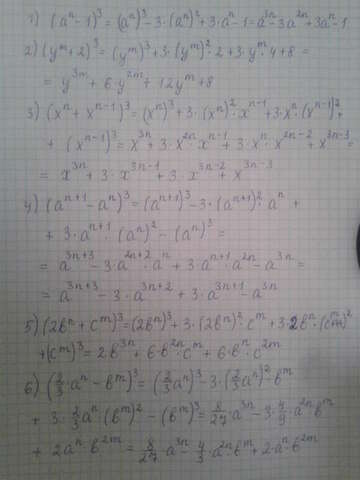 1) (aⁿ-1)³ = (aⁿ)³-3·(aⁿ)²+3·aⁿ-1=a³ⁿ-3a²ⁿ+3aⁿ-1
2) (yᵐ+2)³ = (yᵐ)³+3·(yᵐ)²·2+3·yᵐ·4+8=
= y³ᵐ+6·y²ᵐ+12yᵐ+8
3) (xⁿ+xⁿ⁻¹)³=(xⁿ)³+3·(xⁿ)²·xⁿ⁻¹+3·xⁿ·(xⁿ⁻¹)²+
+ (xⁿ⁻¹)³= x³ⁿ+3·x²ⁿ·xⁿ⁻¹+3·xⁿ·x²ⁿ⁻²+x³ⁿ⁻³=
= x³ⁿ+3·x³ⁿ⁻¹+3·x³ⁿ⁻²+x³ⁿ⁻³
4) (aⁿ⁺¹-aⁿ)³=(aⁿ⁺¹)³-3·(aⁿ⁺¹)²·aⁿ+
+ 3·aⁿ⁺¹·(aⁿ)²-(aⁿ)³=
= a³ⁿ⁺³-3·a²ⁿ⁺²·aⁿ+3·aⁿ⁺¹·a²ⁿ-a³ⁿ=
= a³ⁿ⁺³-3·a³ⁿ⁺²+3·a³ⁿ⁺¹-a³ⁿ
5) (2bⁿ+cᵐ)³=(2bⁿ)³+3·(2bⁿ)²·cᵐ+3·2bⁿ·(cᵐ)²
+(cᵐ)³=2b³ⁿ+6·b²ⁿ·cᵐ+6·bⁿ·c²ᵐ
6) (2/3·aⁿ-bᵐ)³=(2/3aⁿ)³-3·(2/3aⁿ)²·bᵐ
+ 3·2/3aⁿ(bᵐ)²-(bᵐ)³=8/27·a³ⁿ-3·4/9·a²ⁿbᵐ
+ 2aⁿ·b²ᵐ=8/27a³ⁿ-4/3·a²ⁿbᵐ+2·aⁿ·b²ᵐ